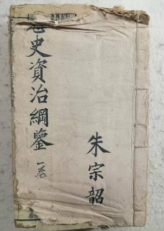 史資治綱鑒
朱宗韶